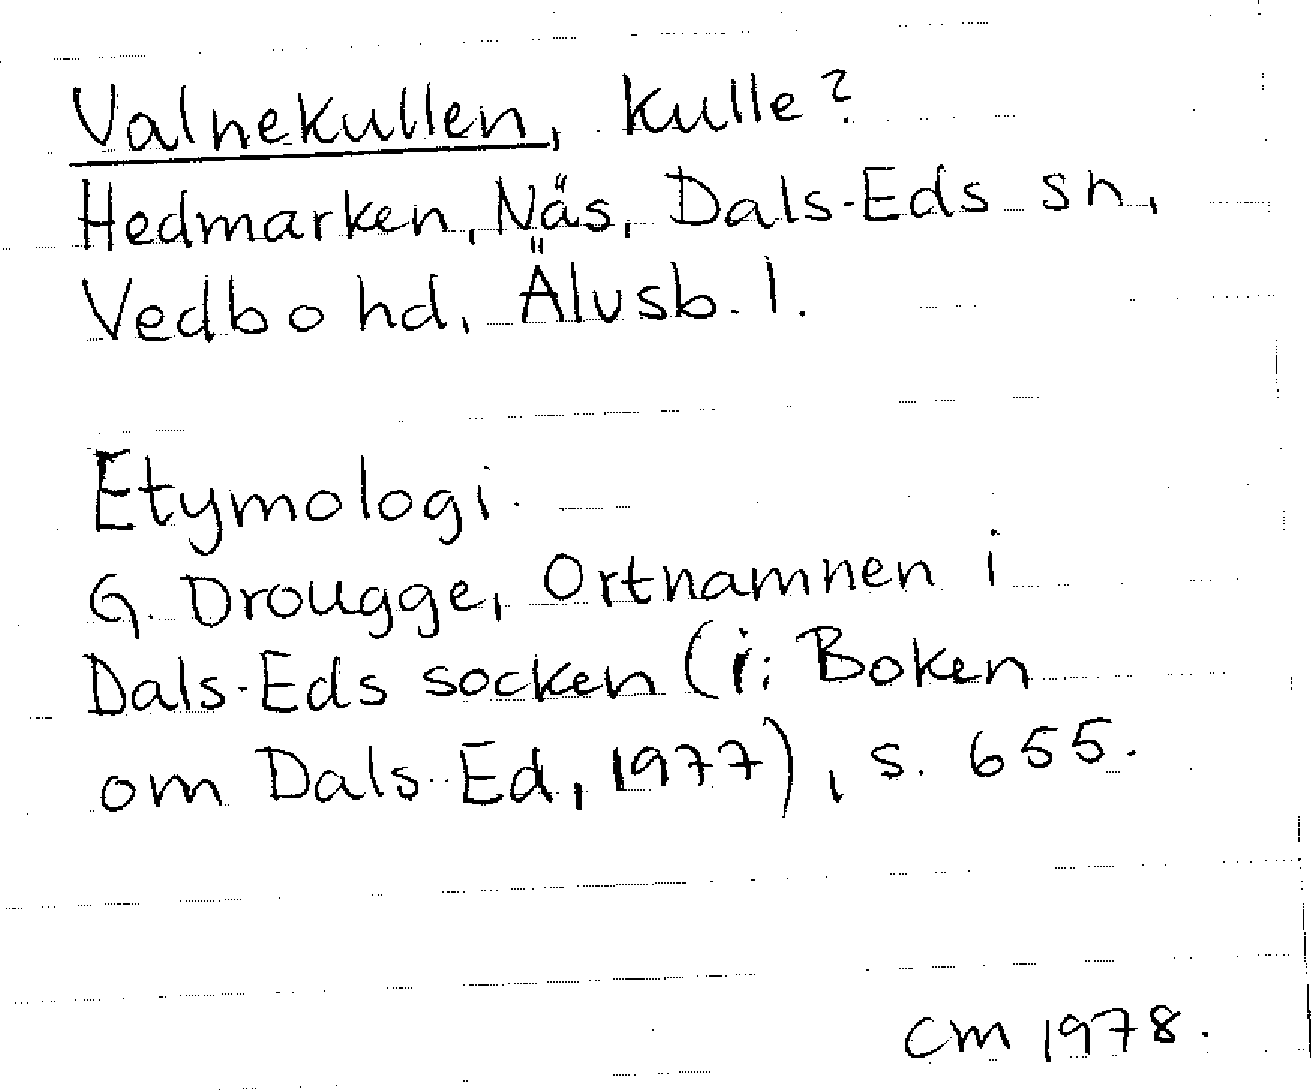 Valnekullen, kulle?
Hedmarken, Näs, Dals-Eds sn,
Vedbo hd, Älvsb. l.
Etymologi.
G. Drougge, Ortnamnen i
Dals-Eds socken (i: Boken
om Dals-Ed, 1977), s. 655.
CM 1978.